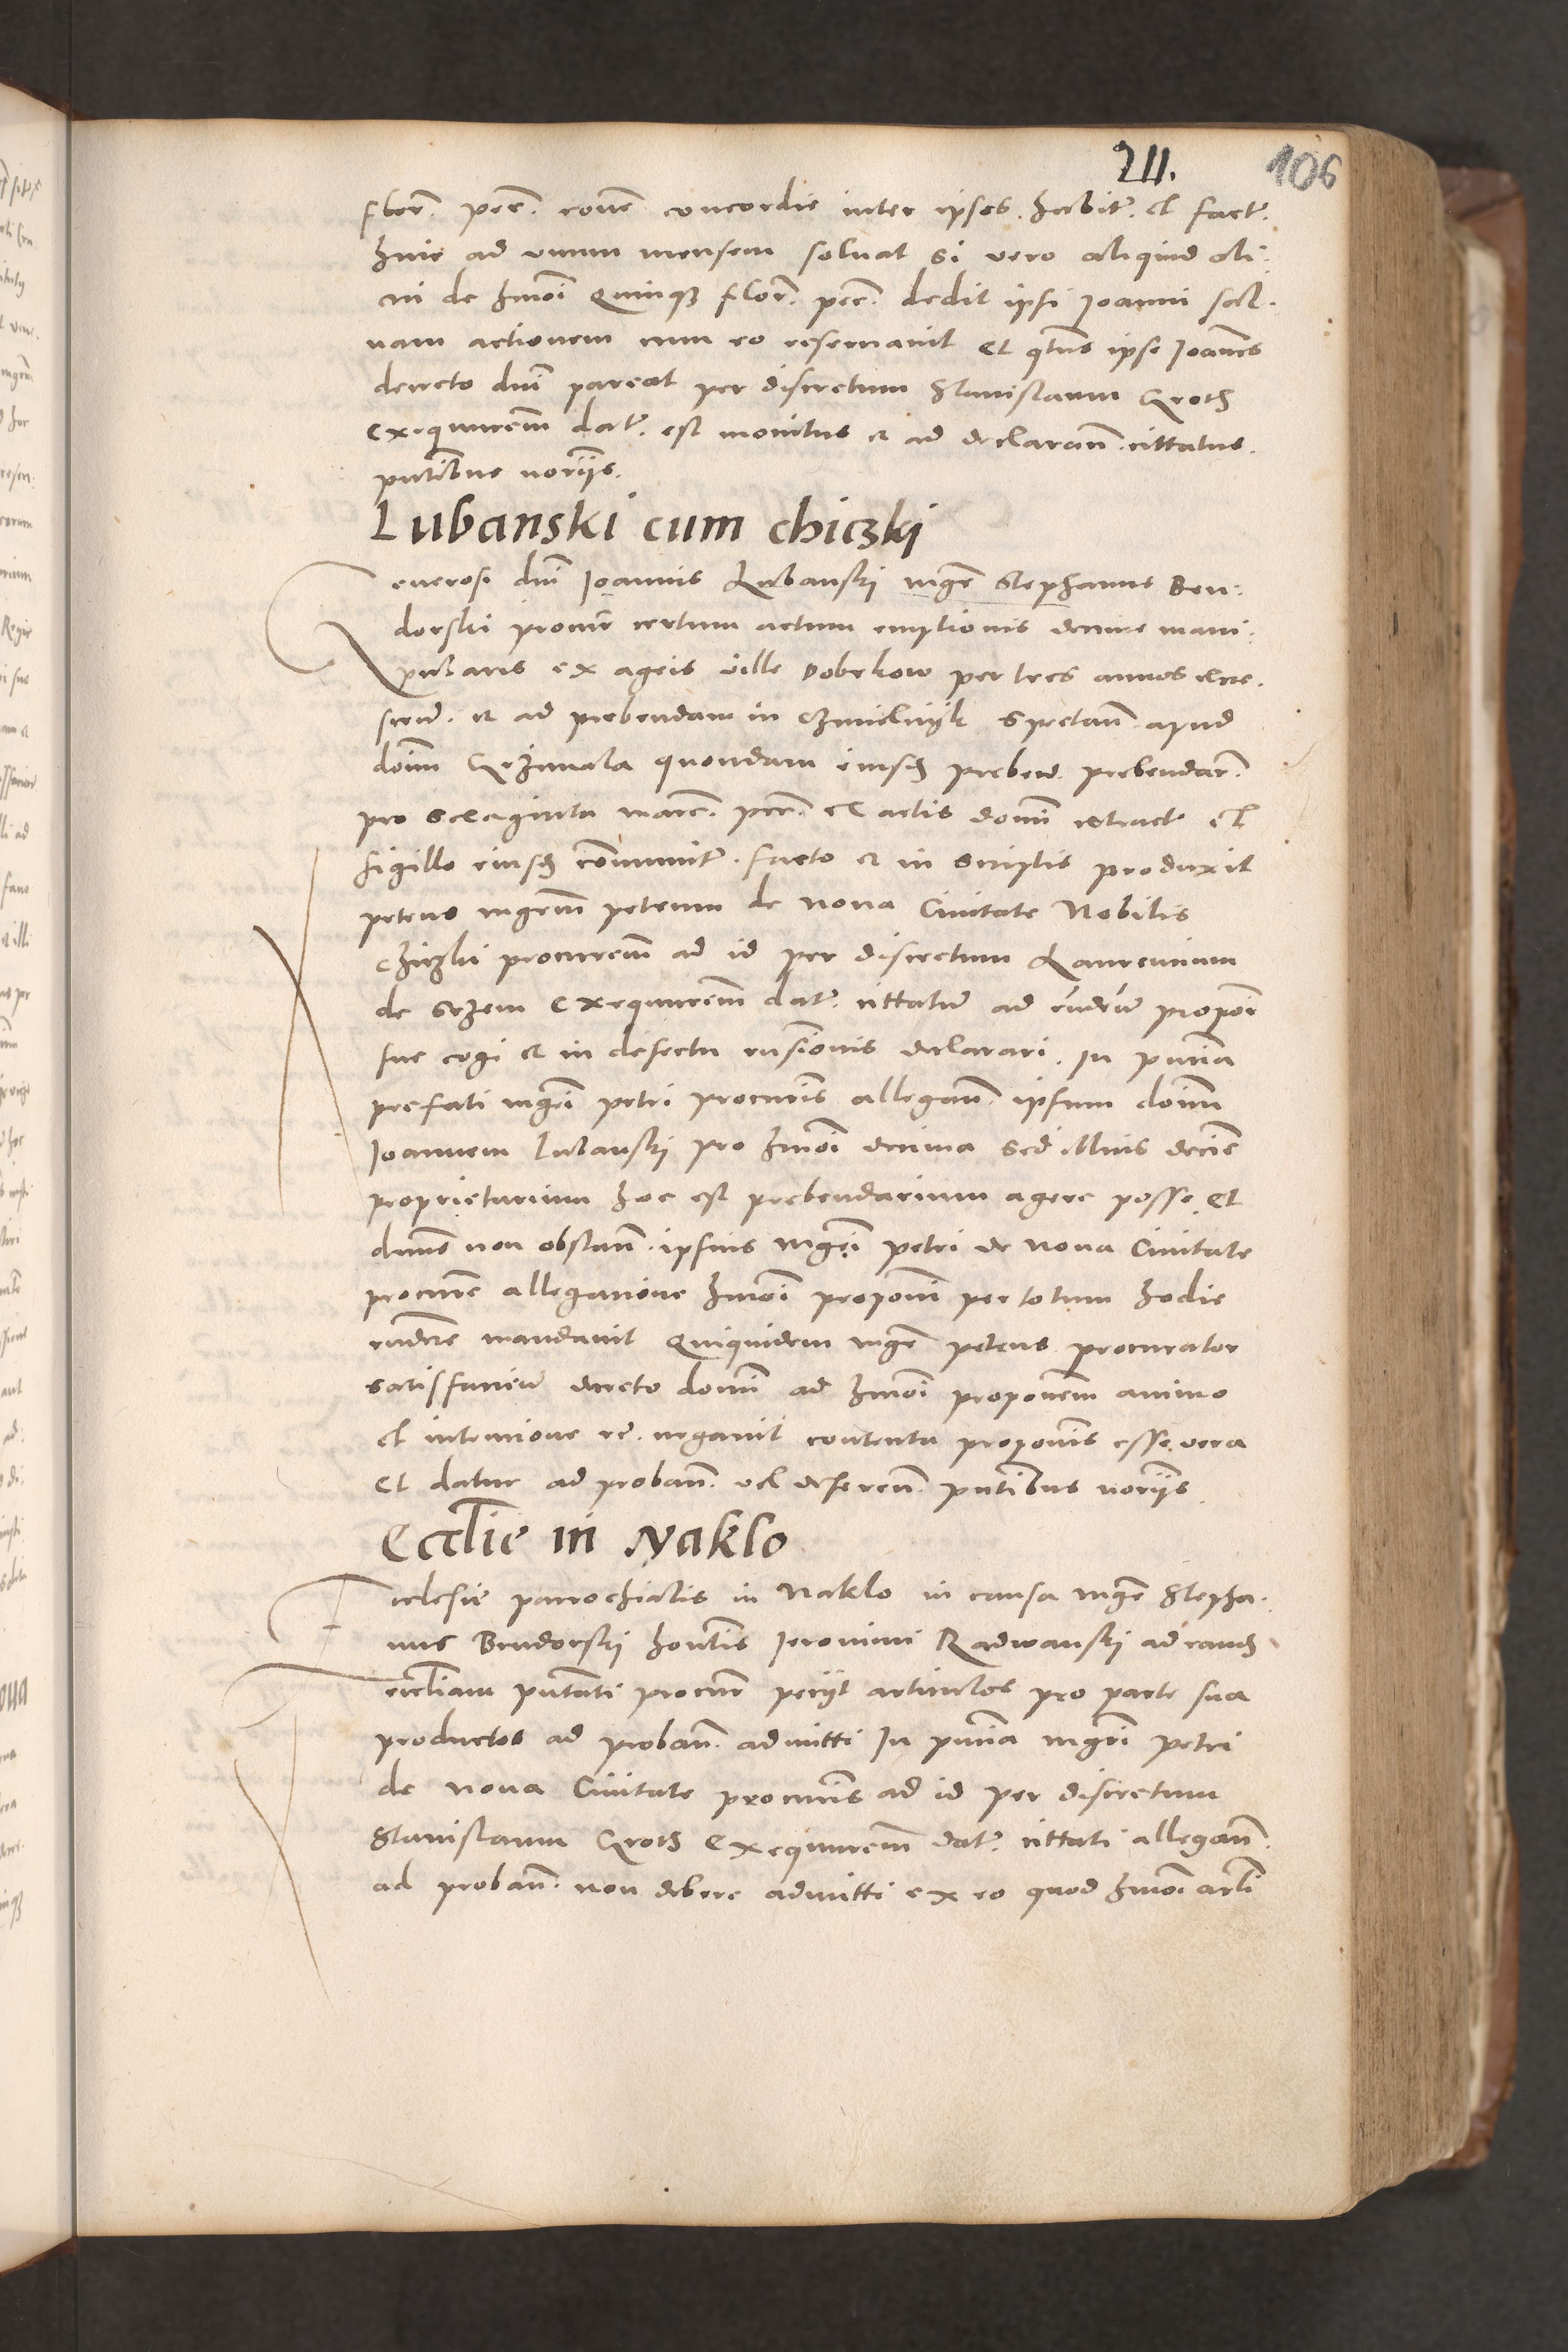 211. 106
flor. pec. rone concordie inter ipsos habit. et fact.
hinc ad unum mensem solvat Si vero aliquid ali:
cui de hmoi Quinq flor. pec. dedit ipsi Joanni sal:
vam actionem cum eo reservavit Et qtus ipse Joanes
decreto dni pareat per discretum Stanislaum Groth
Exequutorem dat. est monitus et ad declarand. cittatus.
pntibus noriis.
Lubanski cum chiczki
Generosi dni Joannis Lubanski mgr Stephanus Ben:
dorski procur certum actum emptionis decime mani:
pularis ex agris ville Dobrkow per tres annos
et ad prebendam in Chmielnyk spectan. apud
dnm Grzimala quondam eiusd prebend. prebendar.
pro sexaginta marc. pec. ex actis domi extract. et
sigillo eiusd comunit. facto et in scriptis produxit
petens mgrum petrum de nova Civitate Nobilis
Chiczki procurem ad id per discretum Laurencium
de Srzem Exequutorem dat. cittatum ad propoi
sue cogi et in defectu rnsionis declarari. In pntia
prefati mgri petri procuris allegan. ipsum dnm
Joannem Lubanski pro hmoi decima sed illius decie
proprietarium hoc est prebendarium agere posse. Et
dnus non obstan. ipsius mgri petri de nova Civitate
procuris allegacione hmoi proponi per totum hodie
rndere mandavit Quiquidem mgr petrus procurator
satisfaciend decreto domi ad hmoi proponem animo
et intencione re. negavit contenta proponis esse vera
Et datur ad proban. vel deferen. pntibus noriis
Ecclie in Naklo
Ecclesie parrochialis in Naklo in causa mgr Stepha:
nus Bendorski honti Jeronimi Radwanski ad eand
eccliam pntati procur peciit articulos pro parte sua
productos ad proban. admitti In pntia mgri petri
de nova Civitate procuris ad id per discretum
Stanislaum Groth Exequutorem dat. cittati allegan.
ad proban. non debere admitti ex eo quod hmoi arli